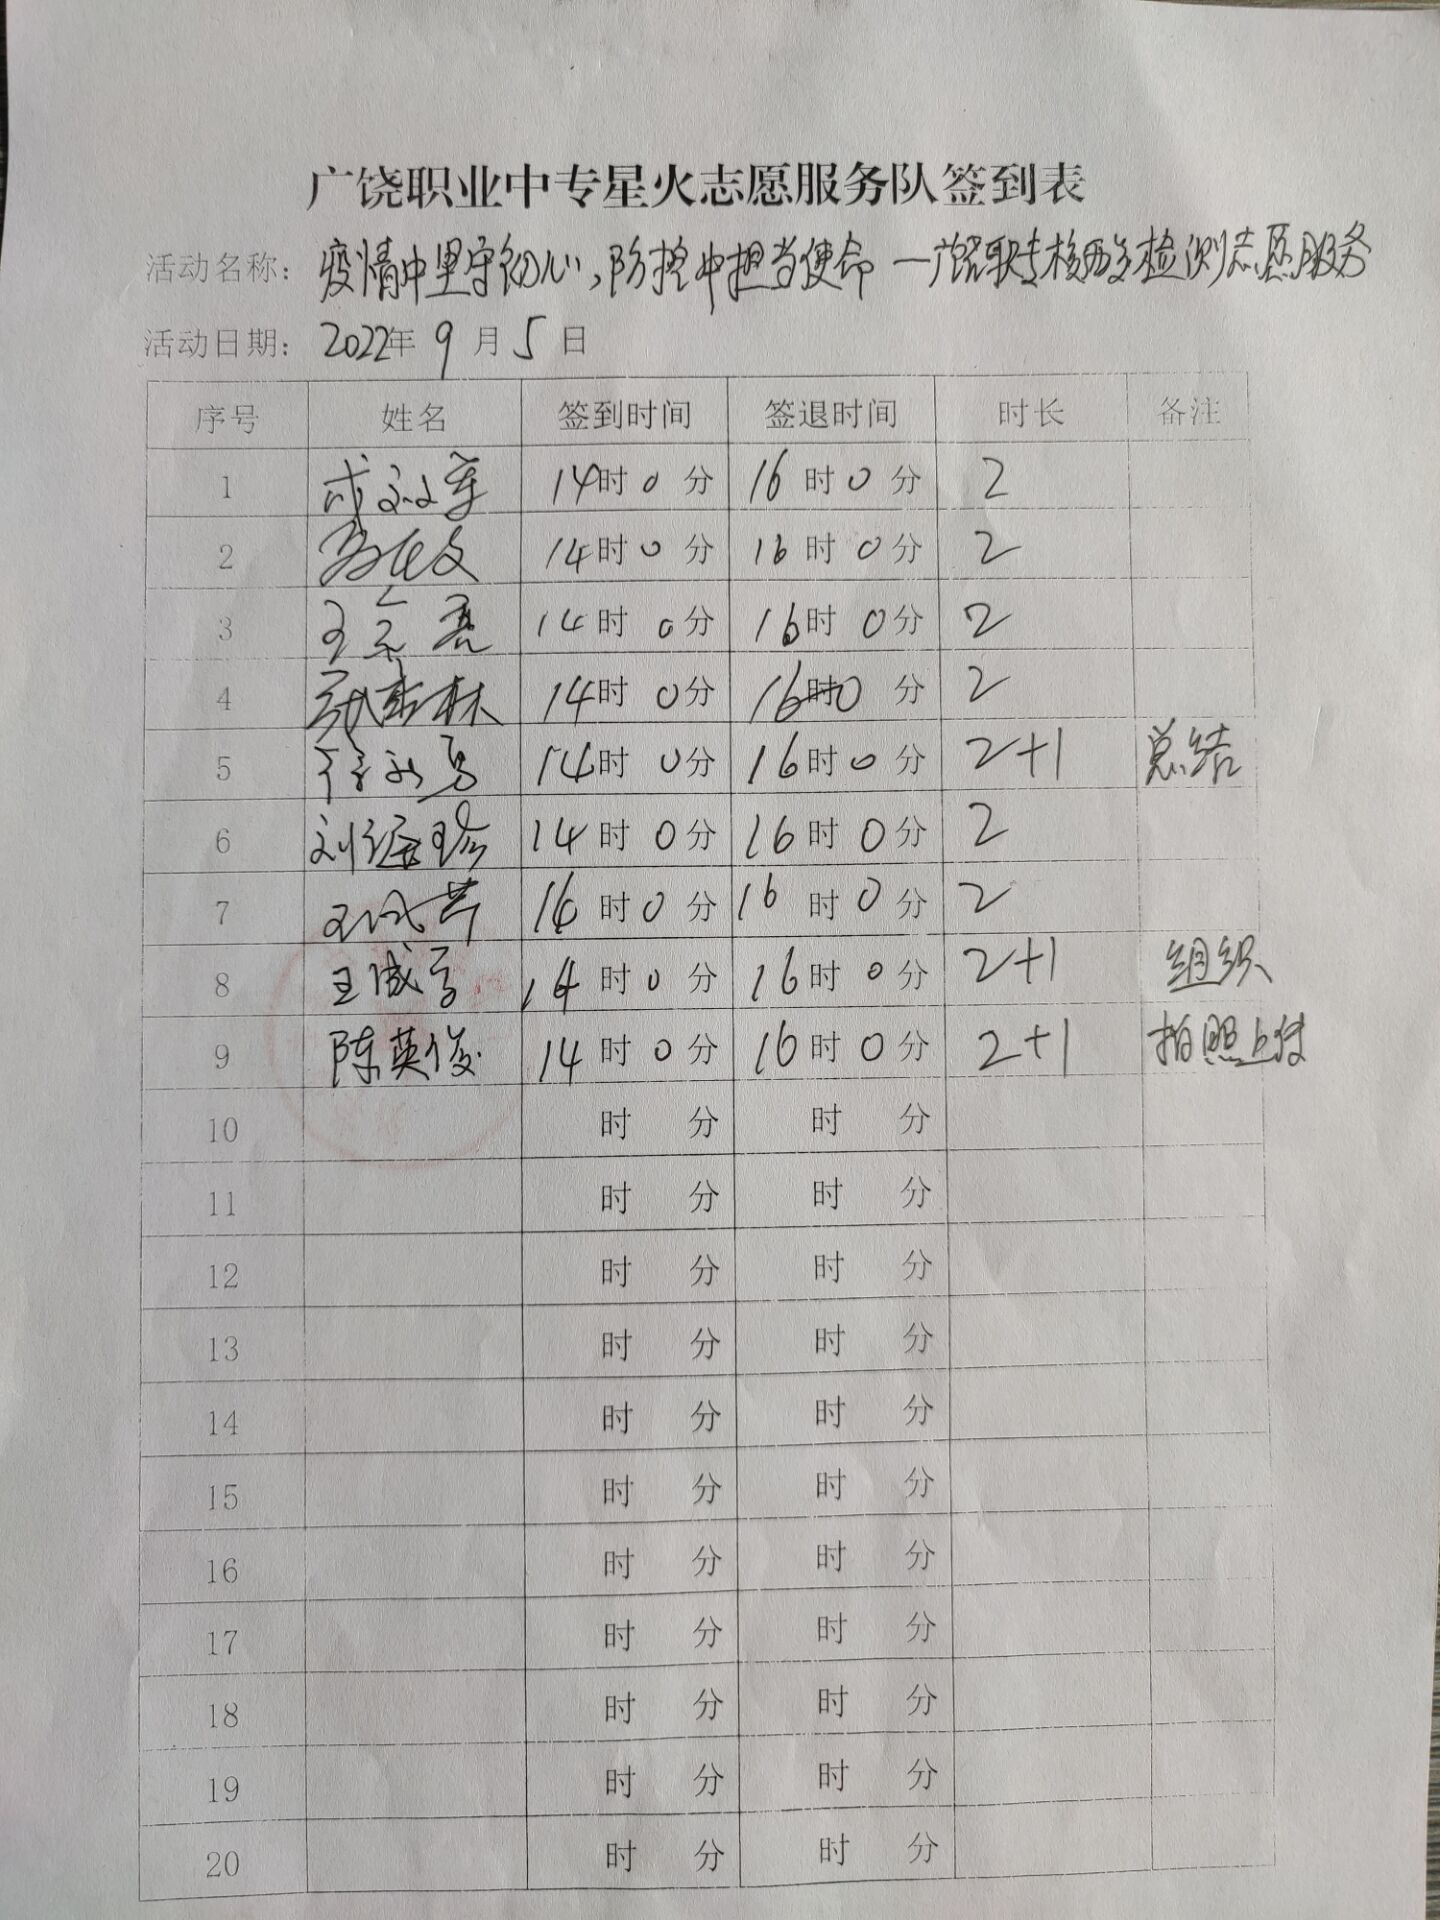 广饶职业中专星火志愿服务队签到表
活动名称：疫情中坚守初心，防控中担当使命—广饶职专核酸检测志愿服务
活动日期：2022年 9 月 5 日
序号 姓名 签到时间 签退时间 时长 备注
1 14时0分 16时0分 2
2 14时0分 16时0分 2
3 王亮 14时0分 16时0分 2
4 林 14时0分 16时0分 2
5 14时0分 16时0分 2+1 总结
6 刘海珍 14时0分 16时0分 2
7 王 14时0分 16时0分 2
8 王成 14时0分 16时0分 2+1 组织
9 陈英俊 14时0分 16时0分 2+1 拍照上传
10 时 分 时 分
11 时 分 时 分
12 时 分 时 分
13 时 分 时 分
14 时 分 时 分
15 时 分 时 分
16 时 分 时 分
17 时 分 时 分
18 时 分 时 分
19 时 分 时 分
20 时 分 时 分